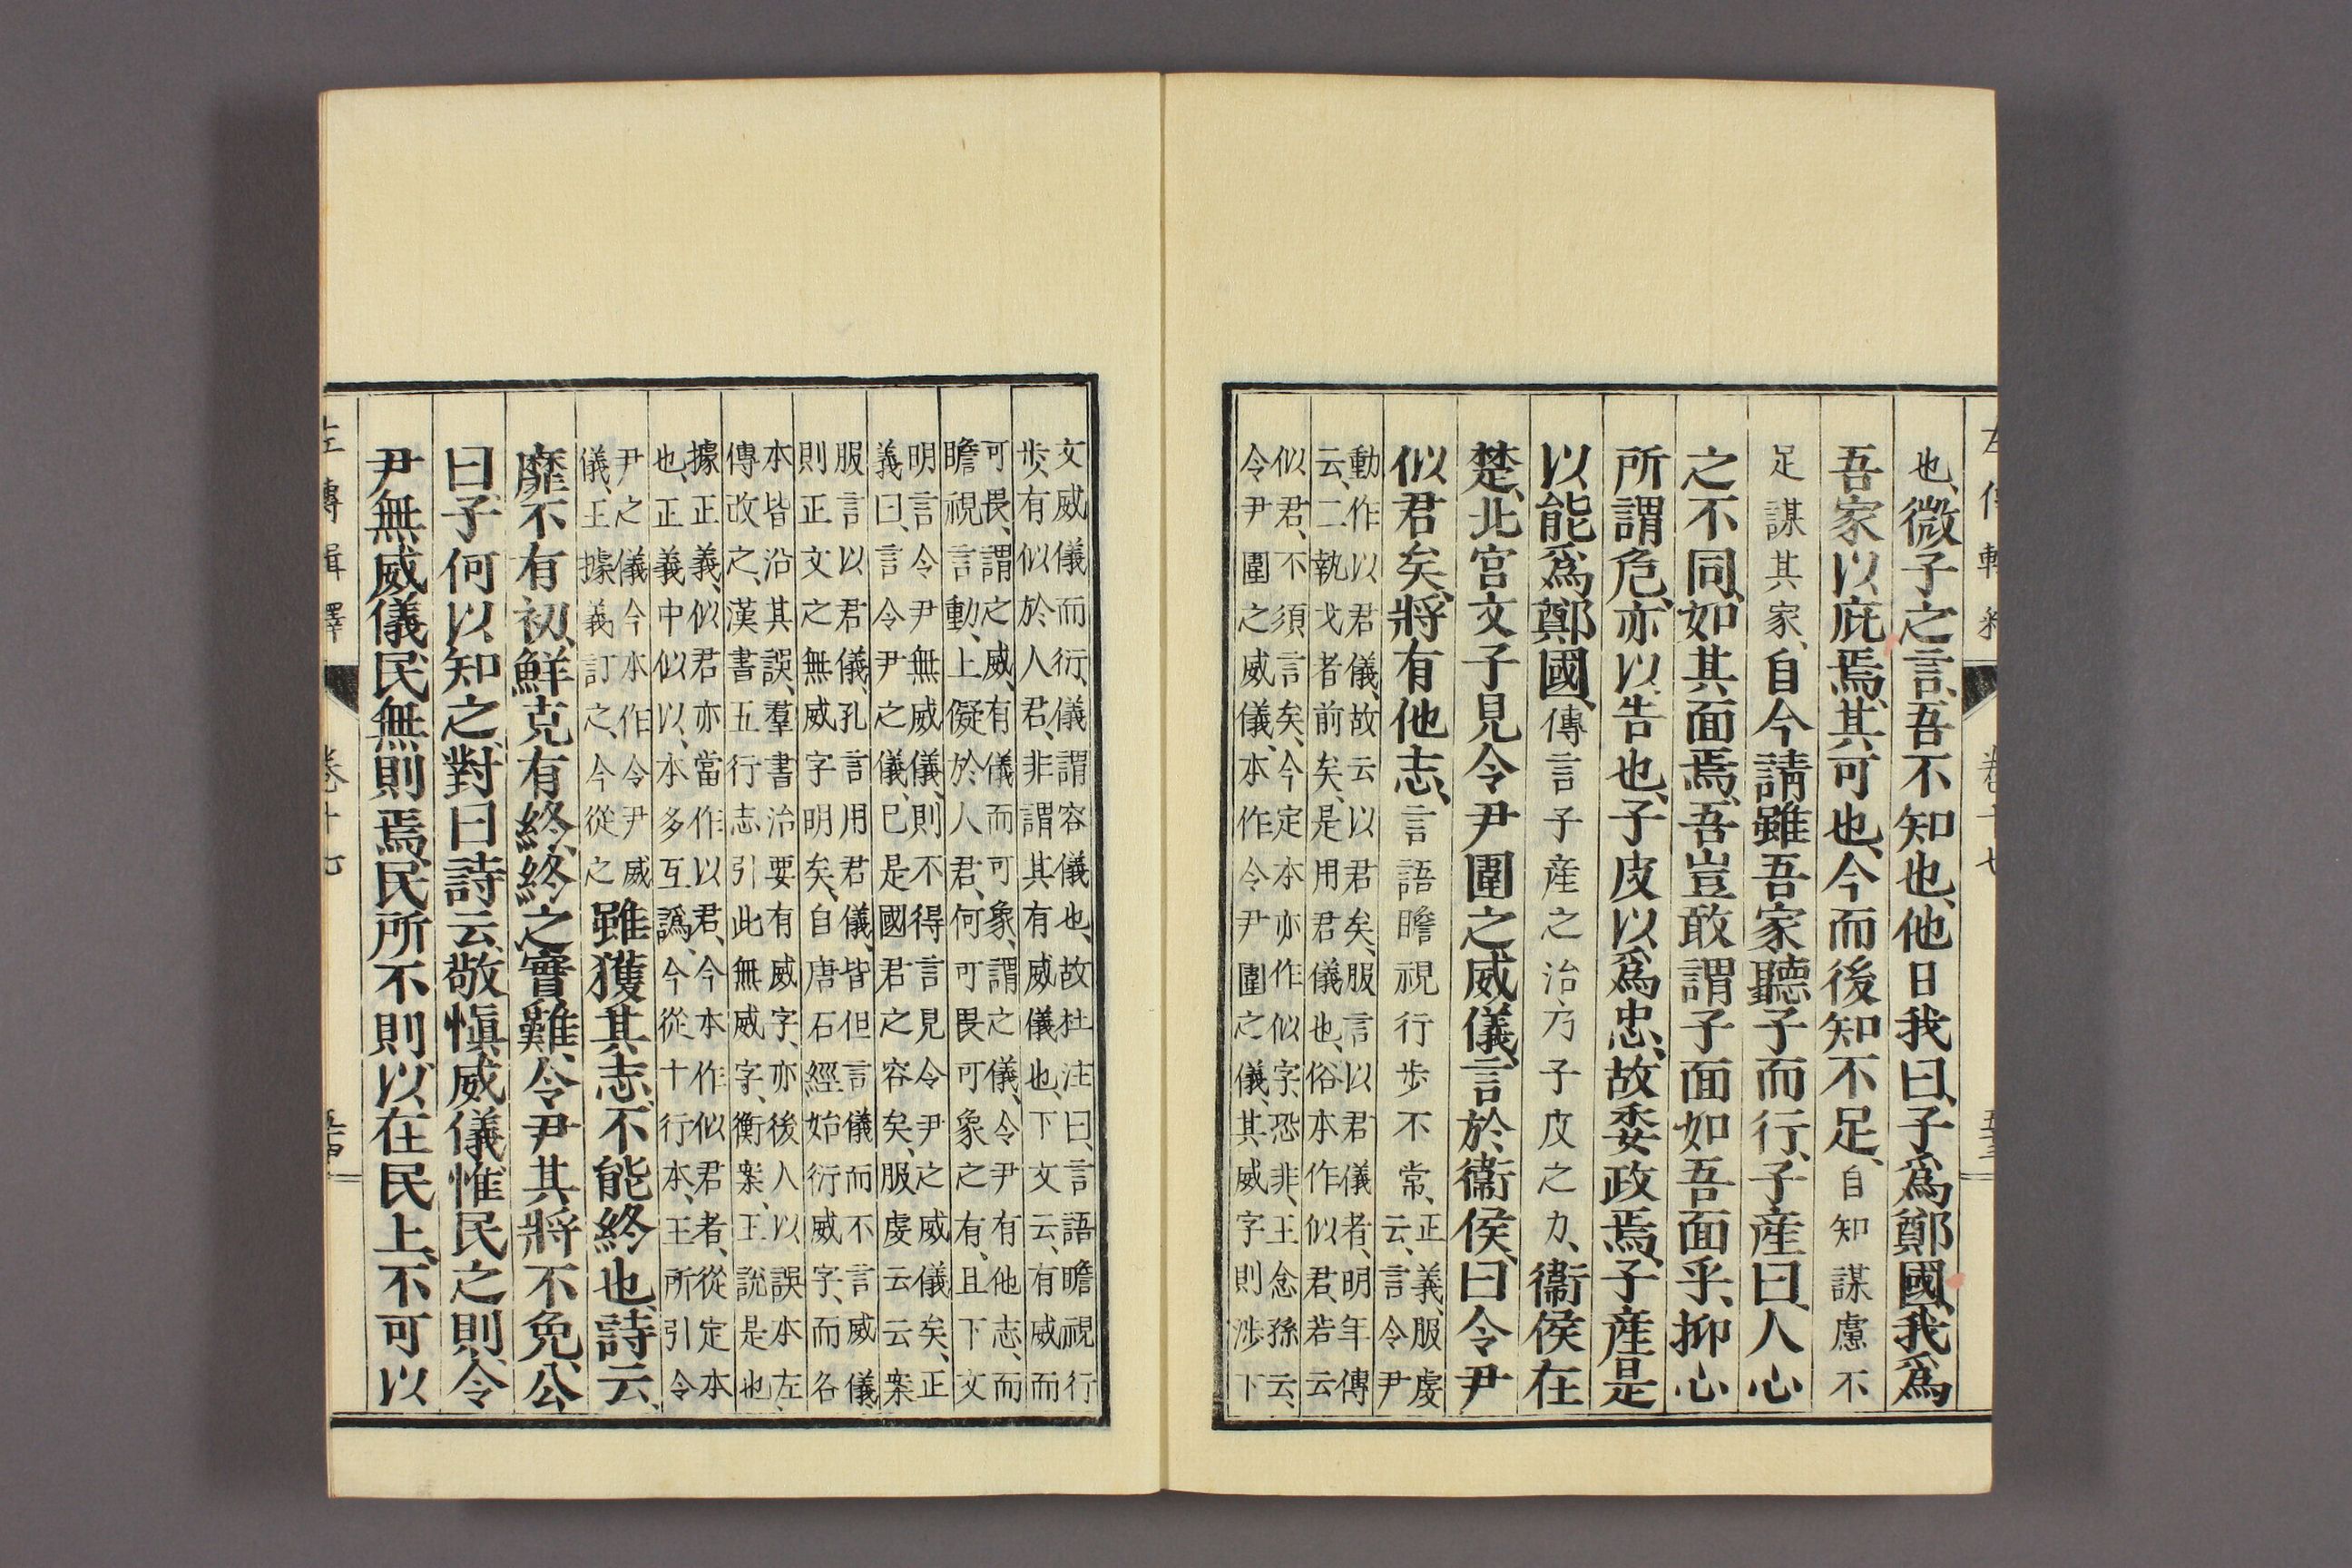 也、微子之言、吾不知也、他日我曰、子爲鄭國、我爲
吾家以庇焉、其可也、今而後知不足、自知謀慮不
足謀其家、自今請雖吾家聽子而行、子産曰、人心
之不同、如其面焉、吾豈敢謂子面如吾面乎、抑心
所謂危、亦以告也、子皮以爲忠、故委政焉、子産是
以能爲鄭國、傳言子産之治乃子皮之力、衞侯在
楚、北宮文子見令尹圍之威儀、言於衞侯、曰令尹
似君矣、將有他志、言語瞻視行步不常、正義、服虔
云、言令尹
動作以君儀、故云以君矣、服言以君儀者、明年傳
云、二執戈者前矣、是用君儀也、俗本作似君、若云
似君、不須言矣、今定本亦作似字、恐非、王念孫云、
令尹圍之威儀、本作令尹圍之儀、其威字則涉下
文威儀而衍、儀謂容儀也、故杜注曰、言語瞻視行
步、有似於人君、非謂其有威儀也、下文云、有威而
可畏、謂之威、有儀而可象、謂之儀、令尹有他志、而
瞻視言動、上儗於人君、何可畏可象之有、且下文
明言令尹無威儀、則不得言見令尹之威儀矣、正
義曰、言令尹之儀、已是國君之容矣、服虔云云案
服言以君儀、孔言用君儀、皆但言儀而不言威儀、
則正文之無威字明矣、自唐石經始衍威字、而各
本皆沿其誤、羣書治要有威字、亦後人以誤本左
傳改之、漢書五行志引此無威字、衡案、王說是也、
據正義、似君亦當作以君、今本作似君者、從定本
也、正義中似以、本多互譌、今從十行本、王所引令
尹之儀今本作令尹威
儀、王據義訂之、今從之雖獲其志、不能終也、詩云、
靡不有初、鮮克有終、終之實難、令尹其將不免、公
曰、子何以知之、對曰、詩云、敬愼威儀、惟民之則、令
尹無威儀、民無則焉、民所不則、以在民上、不可以
左傳輯釋 卷十七